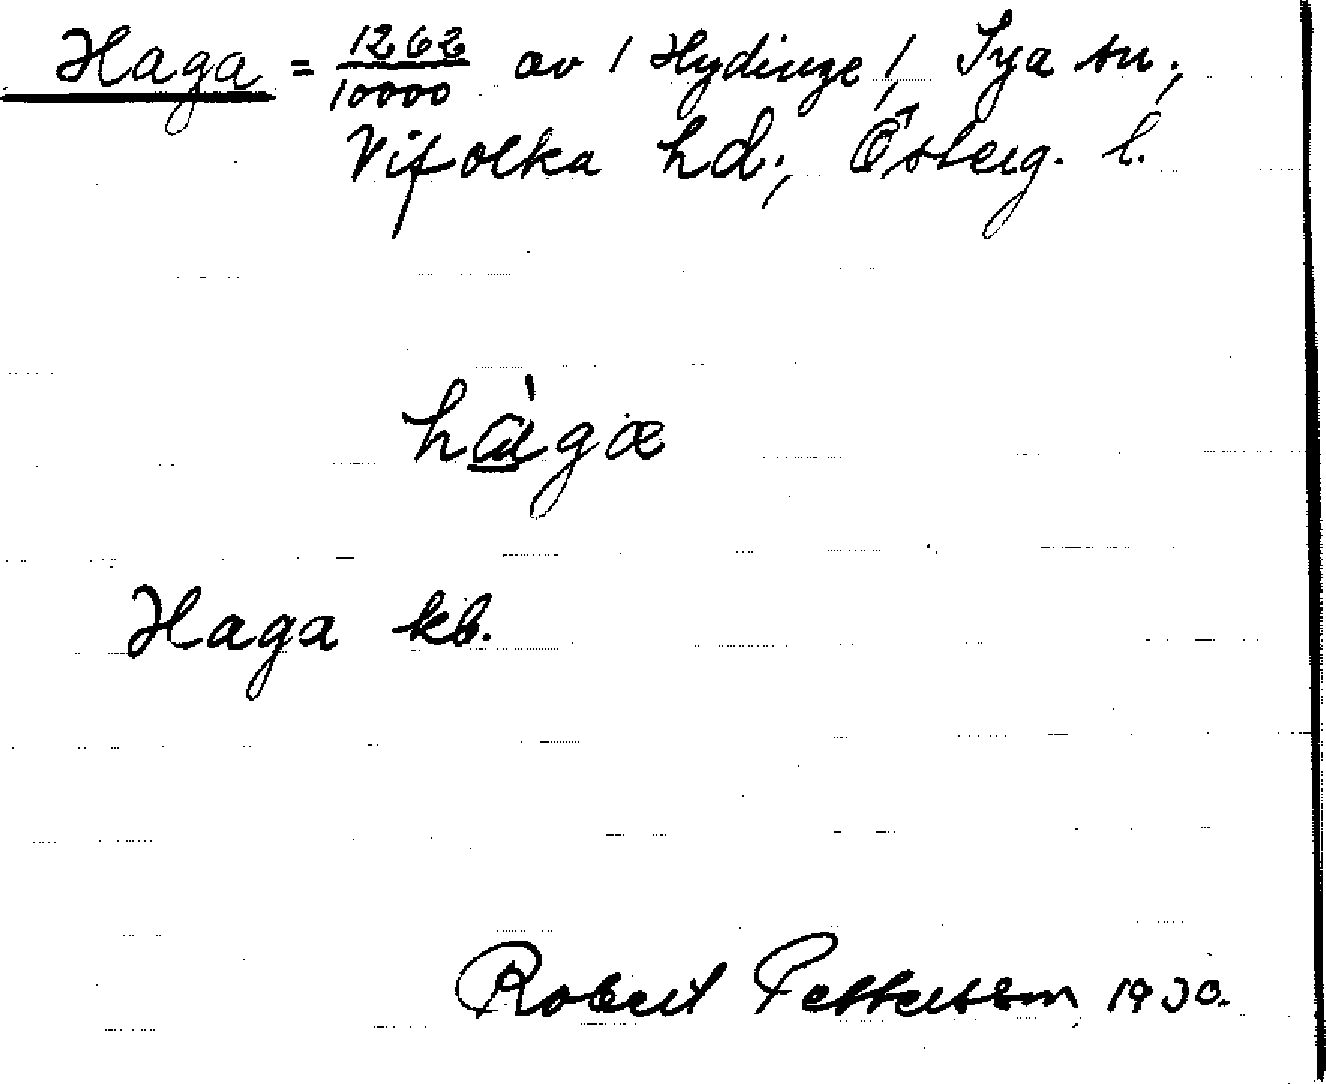 Haga = 1262/10000 av / Hydinge /, Sya sn.,
Vifolka hd., Österg. l.
hàgæ
Haga kb.
Robert Pettersson 1930.